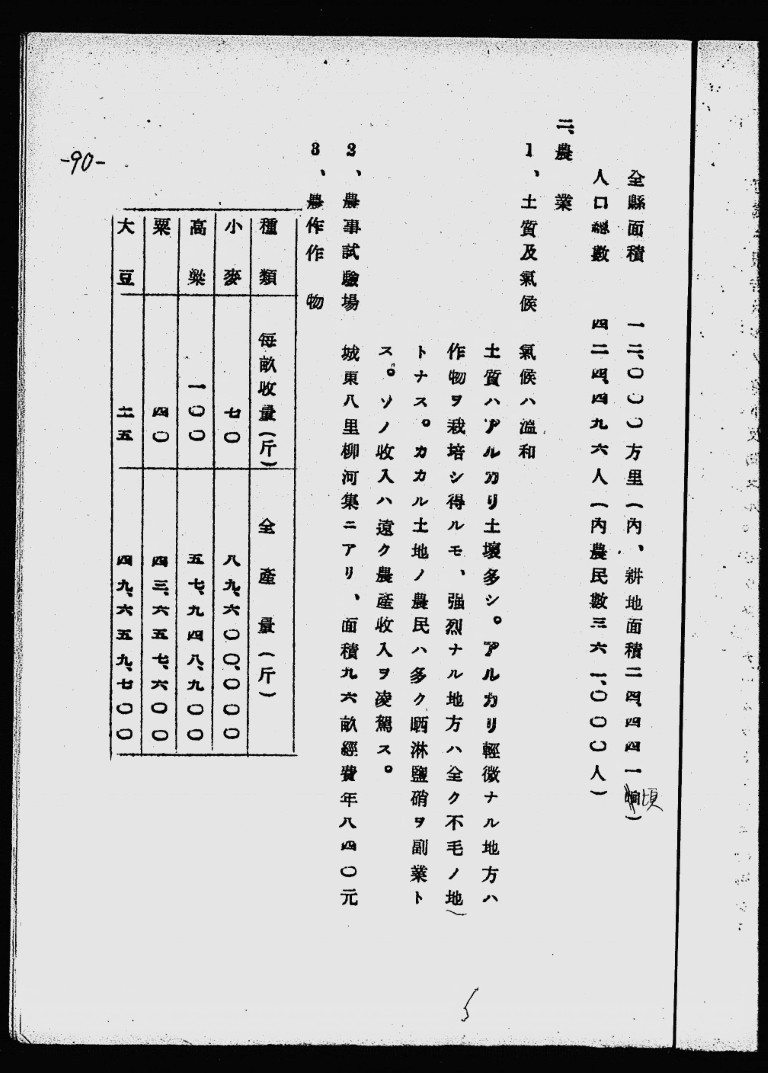 全縣面積　一二、〇〇〇方里（內、耕地面積二四、四四一頃）
人口總數　四二四、四九六人（內農民數三六一、〇〇〇人）
二、農業
1、土質及氣候　氣候ハ溫和
土質ハアルカリ土壤多シ。アルカリ輕微ナル地方ハ
作物ヲ栽培シ得ルモ、强烈ナル地方ハ全ク不毛ノ地
トナス。カカル土地ノ農民ハ多ク晒淋鹽硝ヲ副業ト
ス。ソノ收入ハ遠ク農產收入ヲ凌駕ス。
2、農事試驗場　城東八里柳河集ニアリ、面積九六畝經費年八四〇元
3、農作作物
種類　每畝收量（斤）　全產量（斤）
小麥　七〇　八九、六〇〇、〇〇〇
高粱　一〇〇　五七、九四八、九〇〇
粟　四〇　四三、六五七、六〇〇
大豆　二五　四九、六五九、七〇〇
-90-
5